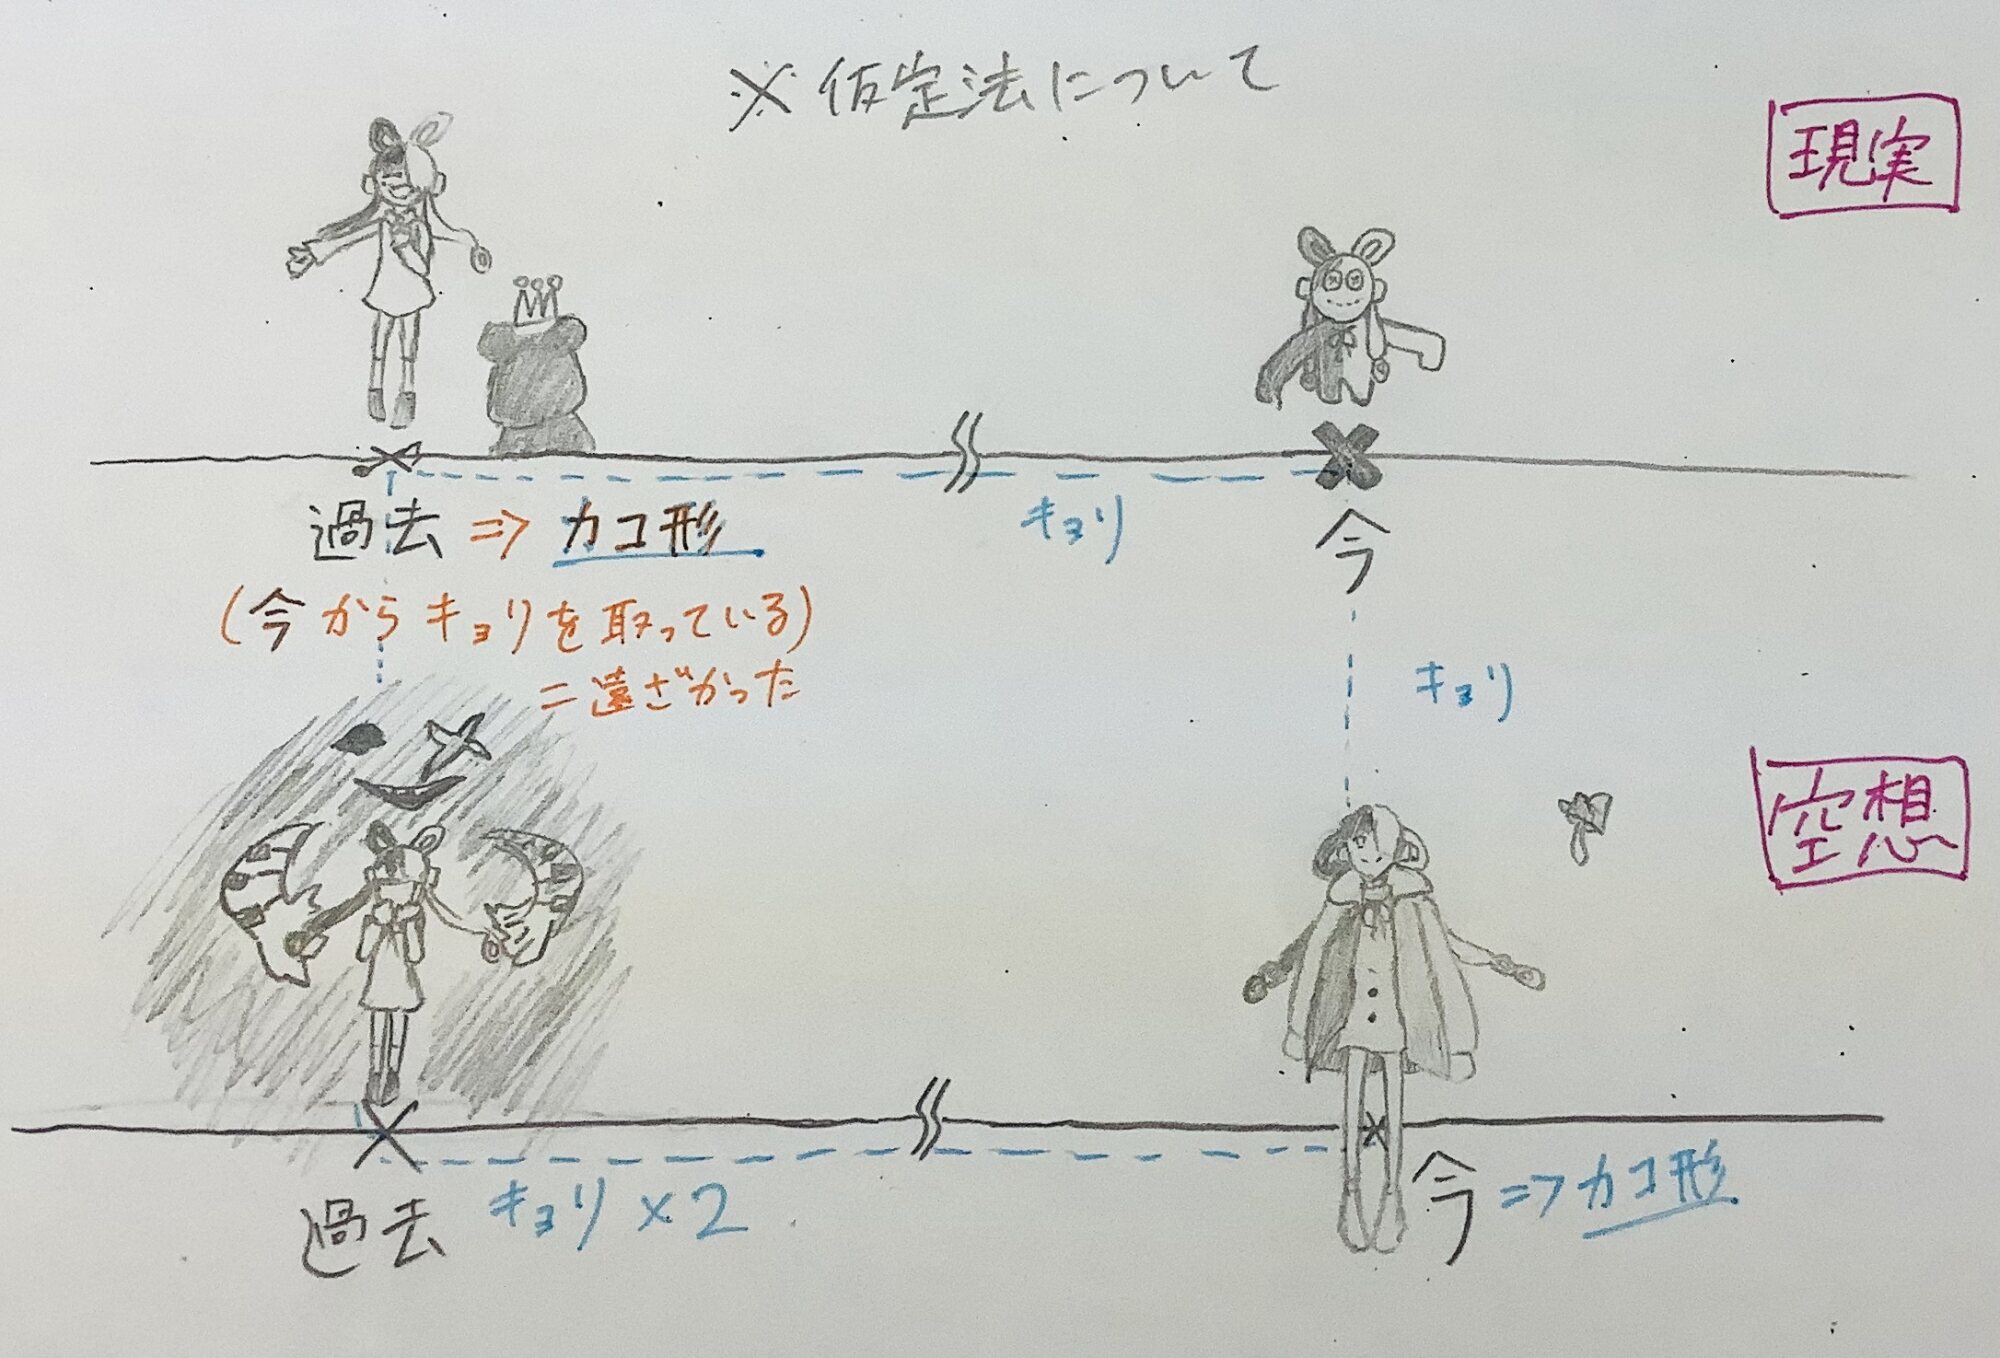 ※仮定法について
現実
過去 => カコ形
キョリ
今
(今からキョリを取っている)
=遠ざかった
キョリ
空想
過去 キョリ×2
今 => カコ形